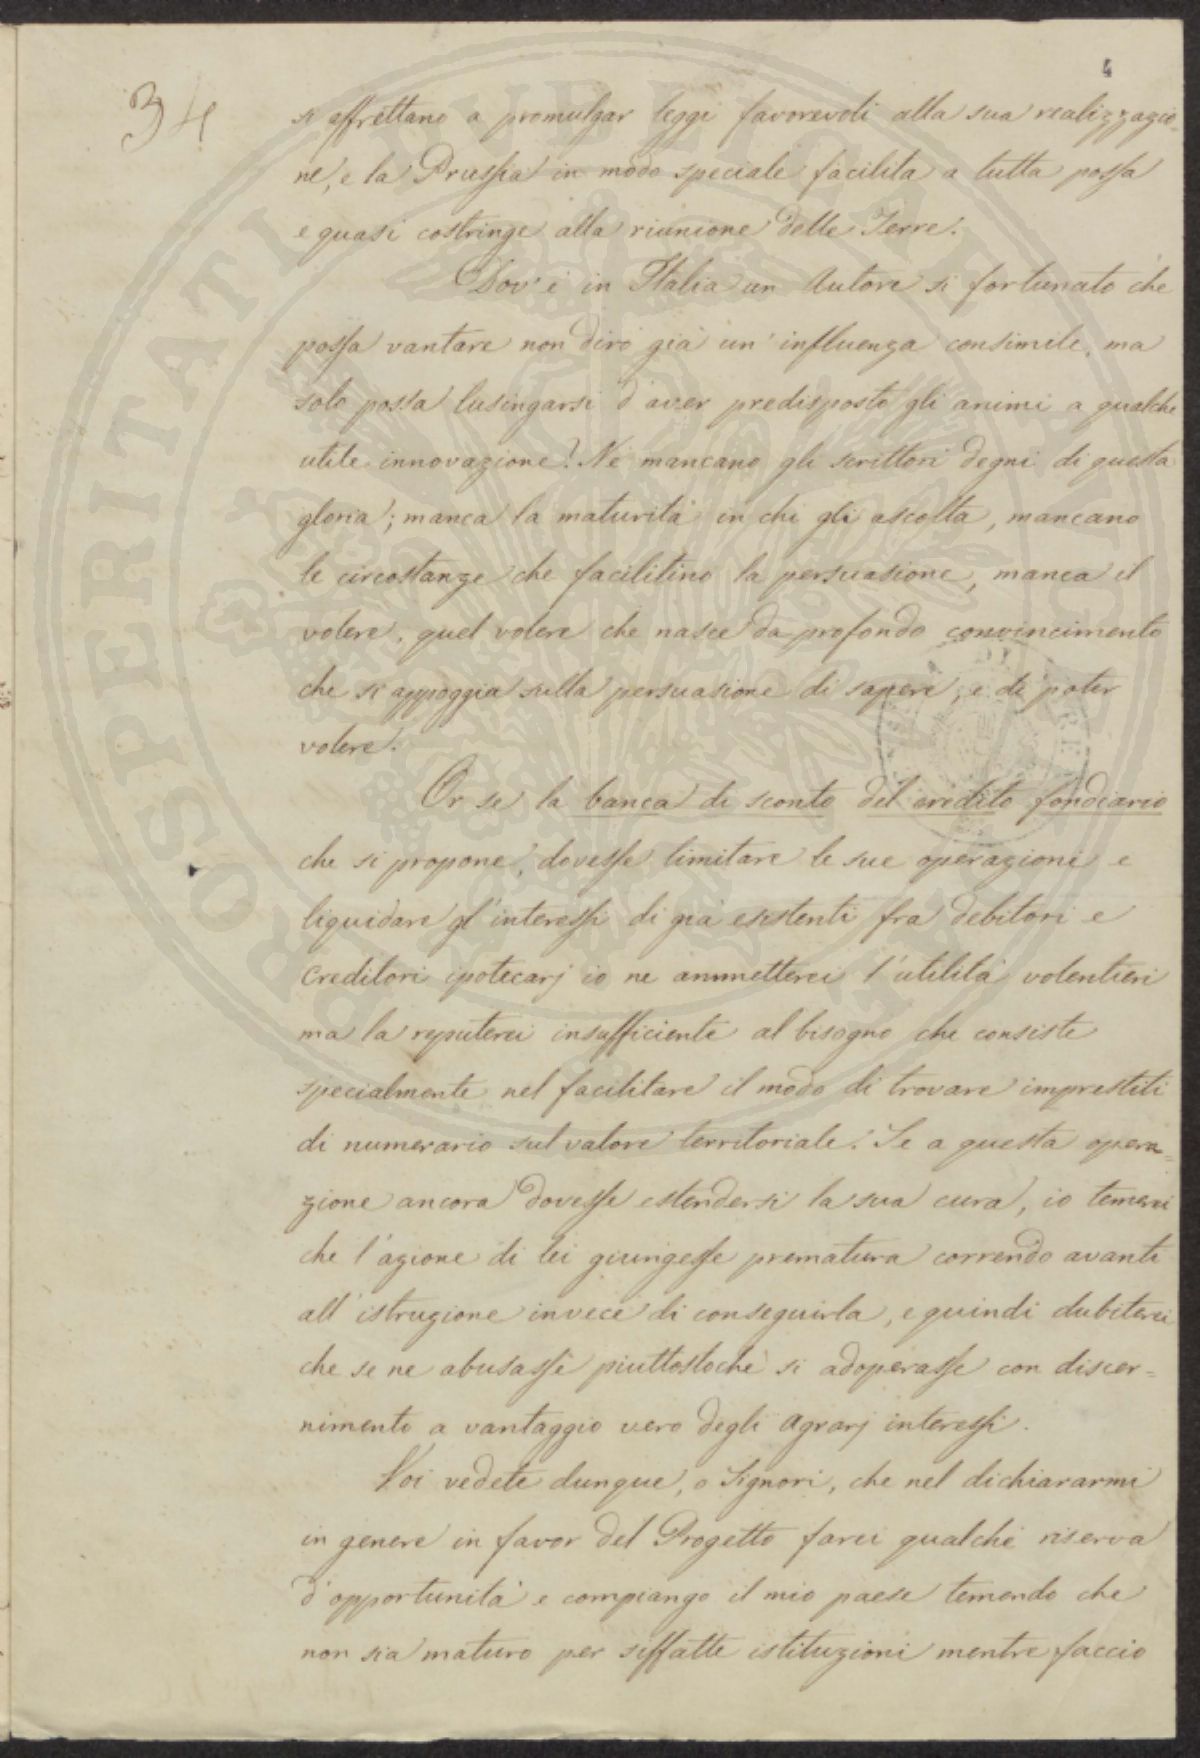 4
34
si affrettano a promulgar leggi favorevoli alla sua realizzazio-
ne, e la Prussia in modo speciale facilita a tutta possa
e quasi costringe alla riunione delle Terre.
Dov'è in Italia un Autore si fortunato che
possa vantare non dirò già un' influenza consimile, ma
solo possa lusingarsi d'aver predisposto gli animi a qualche
utile innovazione? Nè mancano gli scrittori degni di questa
gloria; manca la maturità in chi gli ascolta, mancano
le circostanze che facilitino la persuasione, manca il
volere, quel volere che nasce da profondo convincimento
che si appoggia sulla persuasione di sapere, e di poter
volere.
Or se la banca di sconto del credito fondiario
che si propone, dovesse limitare le sue operazioni e
liquidare gl'interessi di già esistenti fra debitori e
Creditori ipotecarj io ne ammetterei l'utilità volentieri
ma la reputerei insufficiente al bisogno che consiste
specialmente nel facilitare il modo di trovare imprestiti
di numerario sul valore territoriale. Se a questa opera=
zione ancora dovesse estendersi la sua cura, io temerei
che l'azione di lei giungesse prematura correndo avanti
all'istruzione invece di conseguirla, e quindi dubiterei
che se ne abusasse piuttostochè si adoperasse con discer=
nimento a vantaggio vero degli agrarj interessi.
Voi vedete dunque, o Signori, che nel dichiararmi
in genere in favor del Progetto farei qualche riserva
d'opportunità e compiango il mio paese temendo che
non sia maturo per siffatte istituzioni mentre faccio
PROSPERITATI PUBLICAE